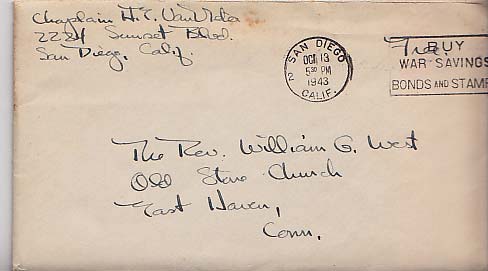 Chaplain H. C.
2224 Sunset Blvd.
San Diego, Calif.
SAN DIEGO
2
OCT 13
5 30 PM
1943
CALIF.
Free
BUY
WAR SAVINGS
BONDS AND STAMP
The Rev. William G. West
Old Stone Church
East Haven,
Conn.